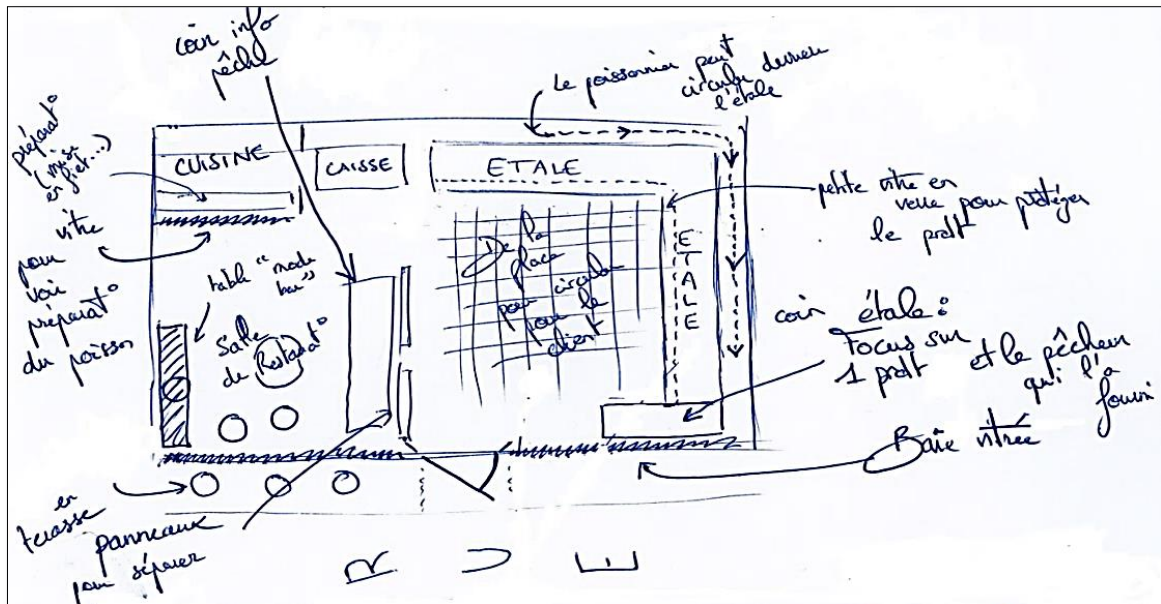 coin info
pêche
Le poissonnier peut
circuler derrière
l'étale
préparat°
(mise
en filet...)
CUISINE
CAISSE
ETALE
petite vitre en
verre pour protéger
le prdt
vitre
pour
voir
préparat°
du poisson
table "mode
bar"
Salle
de Restaurat°
De la
place
pour circuler
pour le
client
ETALE
coin étale :
Focus sur
1 prdt et le pêcheur
qui l'a
fourni
Baie vitrée
en
terasse
panneaux
pour séparer
RUE